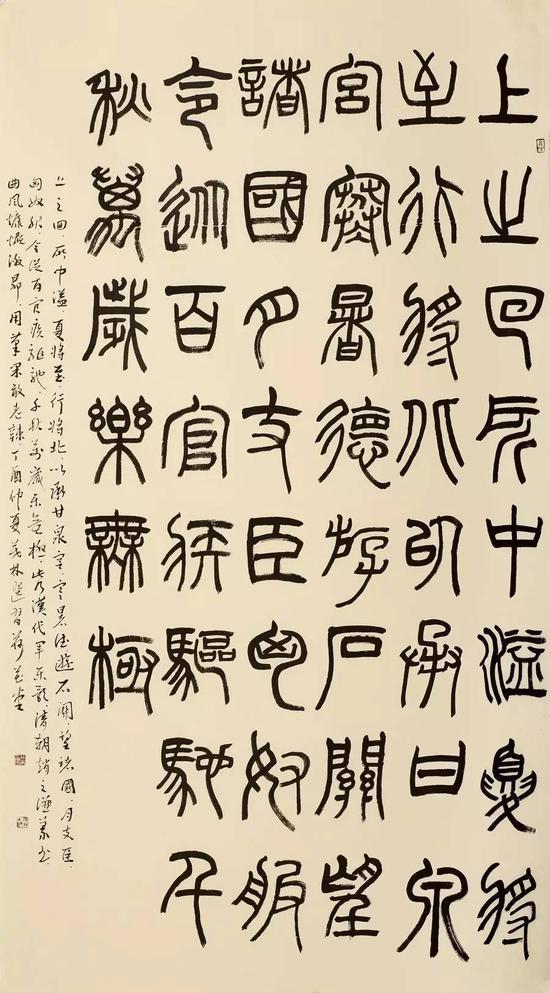 上之回所中溢夏將
至行將北以承甘泉
宮寒暑德游石關望
諸國月支臣匈奴服
令從百官疾驅馳千
秋萬歲樂無極
上之回所中溢夏將至行將北以承甘泉宮寒暑德遊石關望諸國月支臣
匈奴服令從百官疾驅馳千秋萬歲樂無極此乃漢代軍樂歌清朝趙之謙篆书
曲风慷慨激昂用筆果敢老辣丁酉仲夏林選習